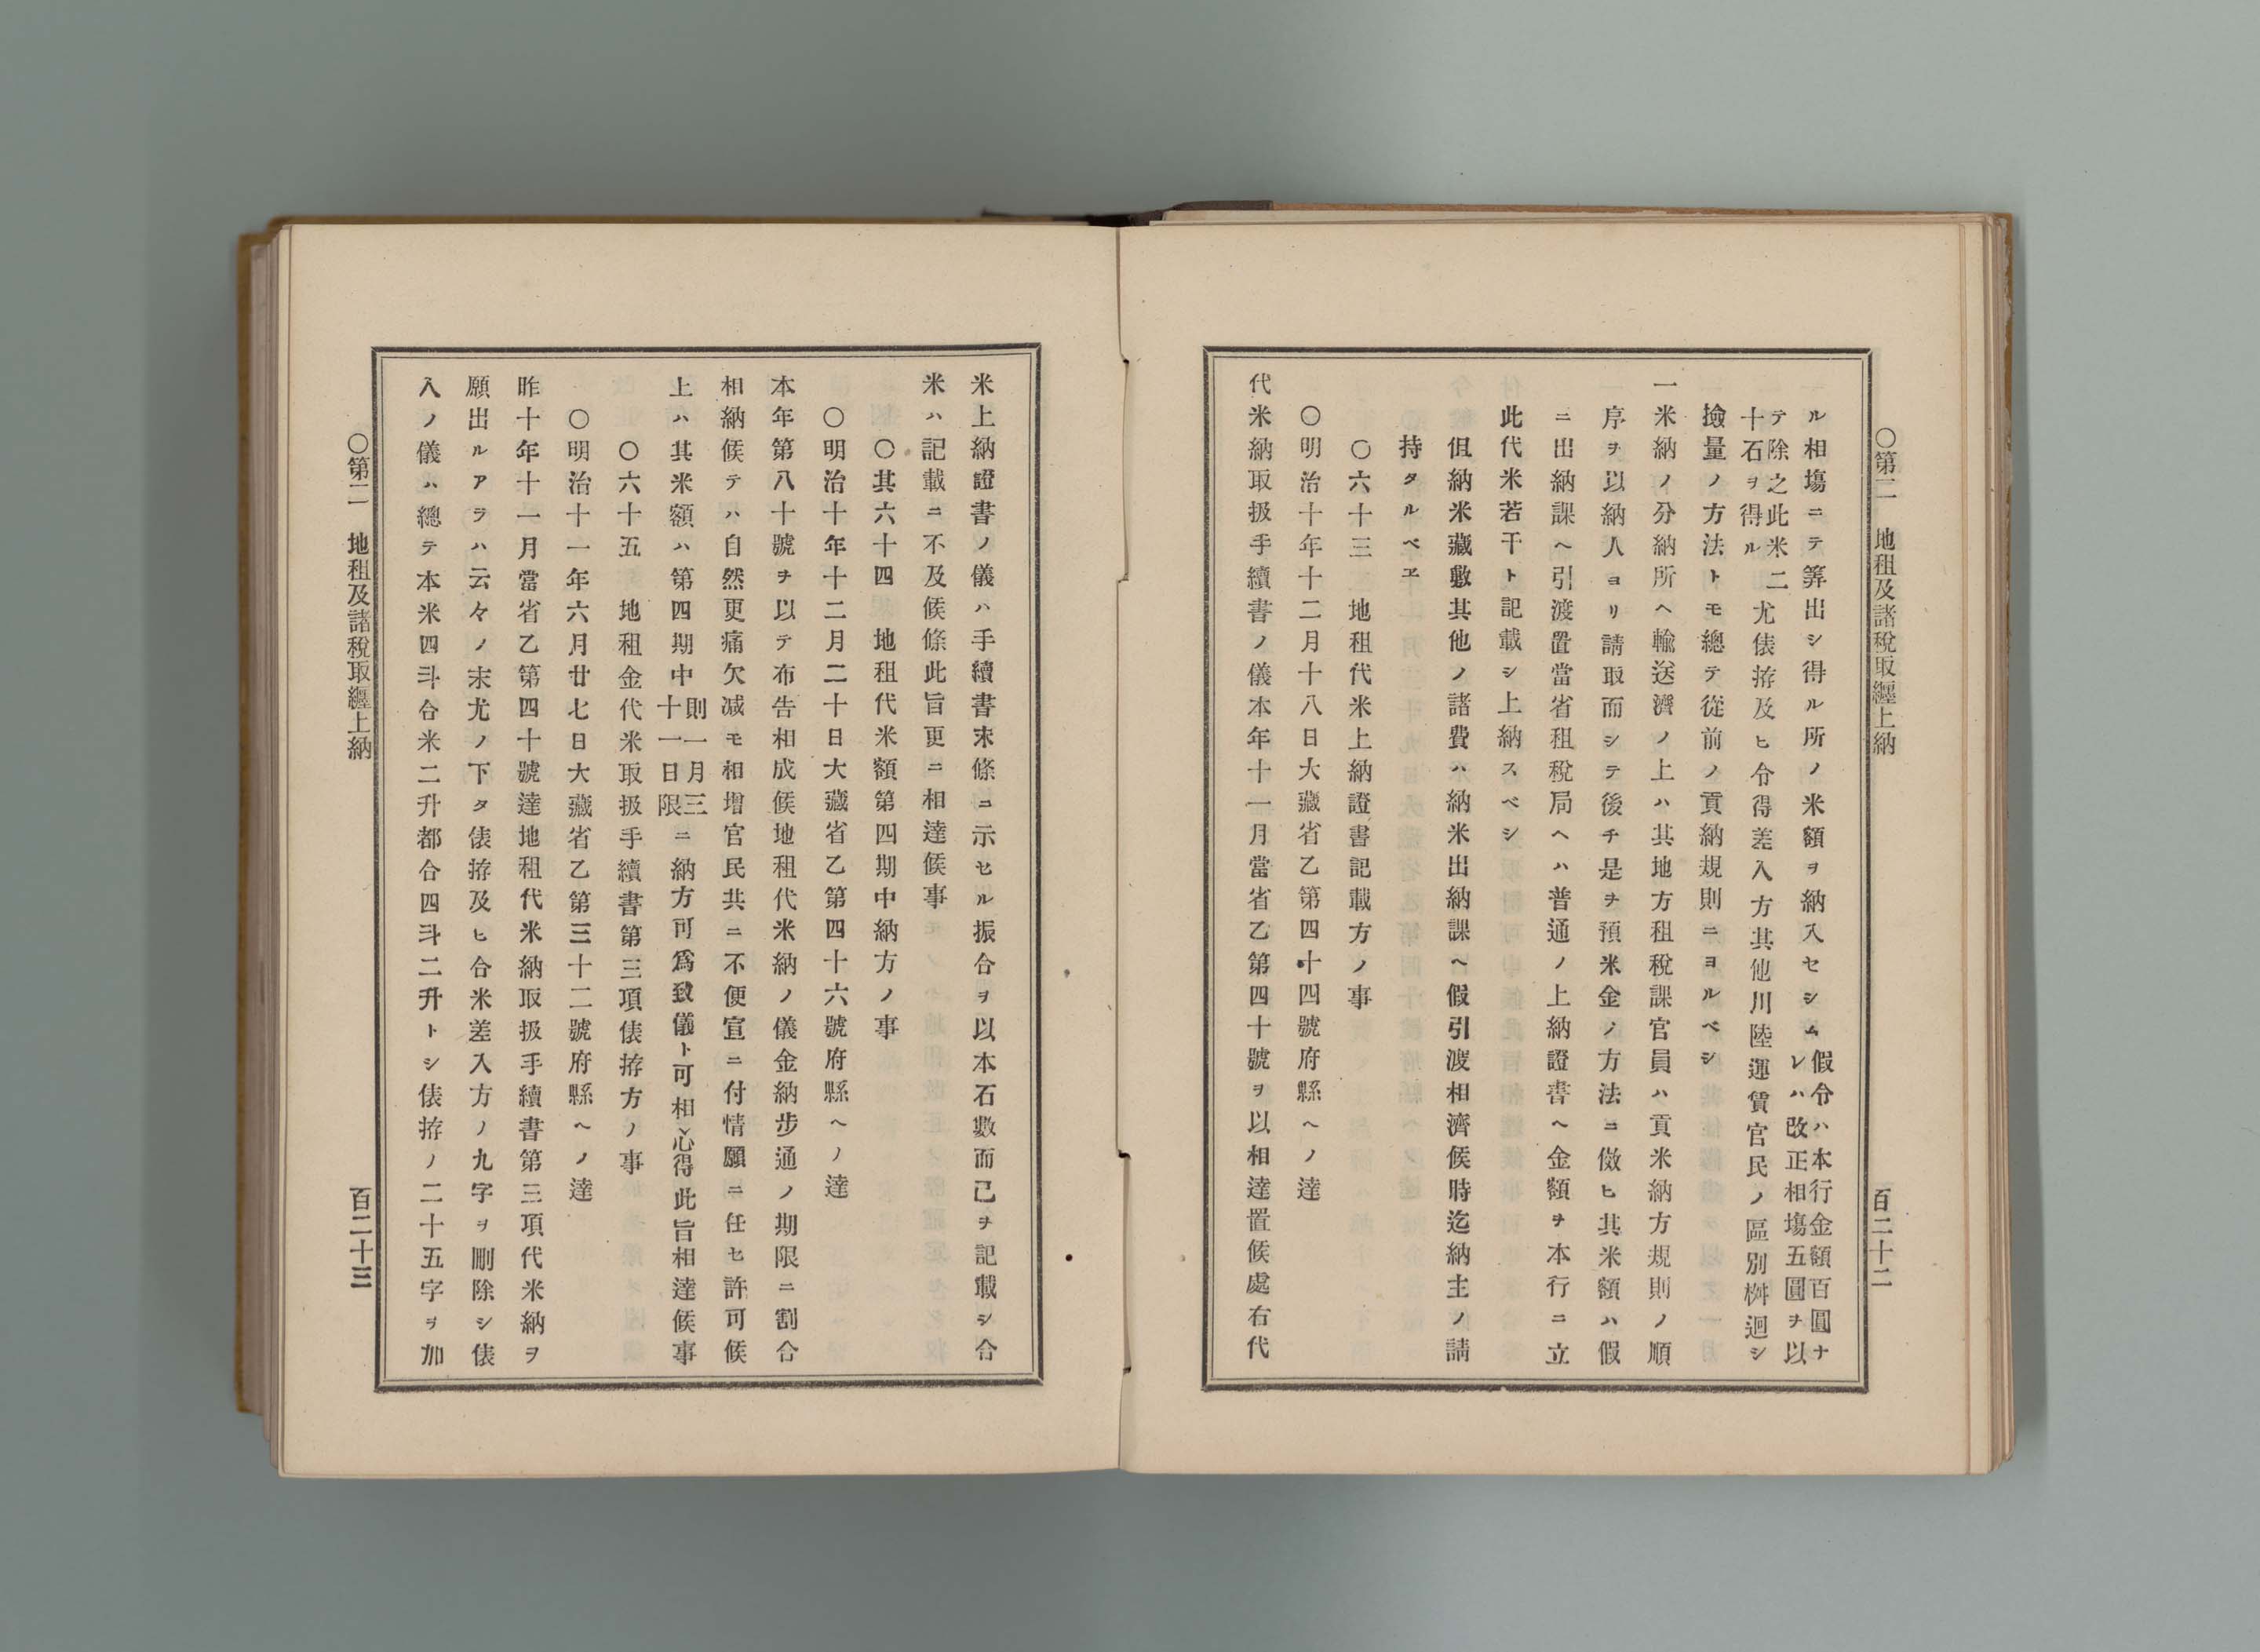 ○第二　地租及諸稅取纒上納　百二十二
ル相塲ニテ筭出シ得ル所ノ米額ヲ納入セシム 假令ハ本行金額百圓ナ
レハ改正相塲五圓ヲ以
テ除之此米二
十石ヲ得ル 尤俵拵及ヒ合得差入方其他川陸運賃官民ノ區別桝𢌞シ
撿量ノ方法トモ總テ從前ノ貢納規則ニヨルベシ
一米納ノ分納所ヘ輸送濟ノ上ハ其地方租稅課官員ハ貢米納方規則ノ順
序ヲ以納人ヨリ請取而シテ後チ是ヲ預米金ノ方法ニ傚ヒ其米額ハ假
ニ出納課ヘ引渡置當省租稅局ヘハ普通ノ上納證書ヘ金額ヲ本行ニ立
此代米若干ト記載シ上納スベシ
但納米藏敷其他ノ諸費ハ納米出納課ヘ假引渡相濟候時迄納主ノ請
持タルベヱ
○六十三　地租代米上納證書記載方ノ事
○明治十年十二月十八日大藏省乙第四十四號府縣ヘノ達
代米納取扱手續書ノ儀本年十一月當省乙第四十號ヲ以相達置候處右代
米上納證書ノ儀ハ手續書末條ニ示セル振合ヲ以本石數而已ヲ記載シ合
米ハ記載ニ不及候條此旨更ニ相達候事
○其六十四　地租代米額第四期中納方ノ事
○明治十年十二月二十日大藏省乙第四十六號府縣ヘノ達
本年第八十號ヲ以テ布告相成候地租代米納ノ儀金納步通ノ期限ニ割合
相納候テハ自然更痛欠减モ相增官民共ニ不便宜ニ付情願ニ任セ許可候
上ハ其米額ハ第四期中 則一月三
十一日限 ニ納方可爲致儀ト可相心得此旨相達候事
○六十五　地租金代米取扱手續書第三項俵拵方ノ事
○明治十一年六月廿七日大藏省乙第三十二號府縣ヘノ達
昨十年十一月當省乙第四十號達地租代米納取扱手續書第三項代米納ヲ
願出ルアラハ云々ノ末尤ノ下タ俵拵及ヒ合米差入方ノ九字ヲ刪除シ俵
入ノ儀ハ總テ本米四斗合米二升都合四斗二升トシ俵拵ノ二十五字ヲ加
○第二　地租及諸稅取纒上納　百二十三